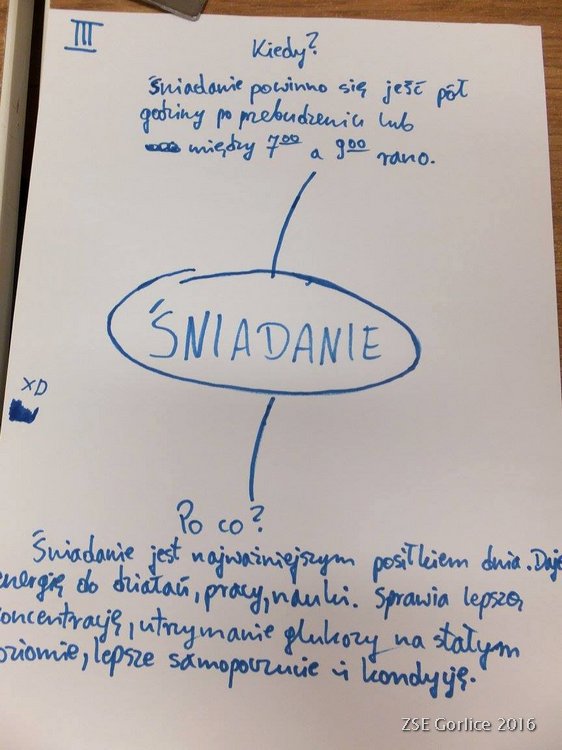 III
Kiedy?
Śniadanie powinno się jeść pół
godziny po przebudzeniu lub
między 7⁰⁰ a 9⁰⁰ rano.
ŚNIADANIE
XD
Po co?
Śniadanie jest najważniejszym posiłkiem dnia. Daje
energię do działań, pracy, nauki. Sprawia lepszą
koncentrację, utrzymanie glukozy na stałym
poziomie, lepsze samopoczucie i kondycję.
ZSE Gorlice 2016